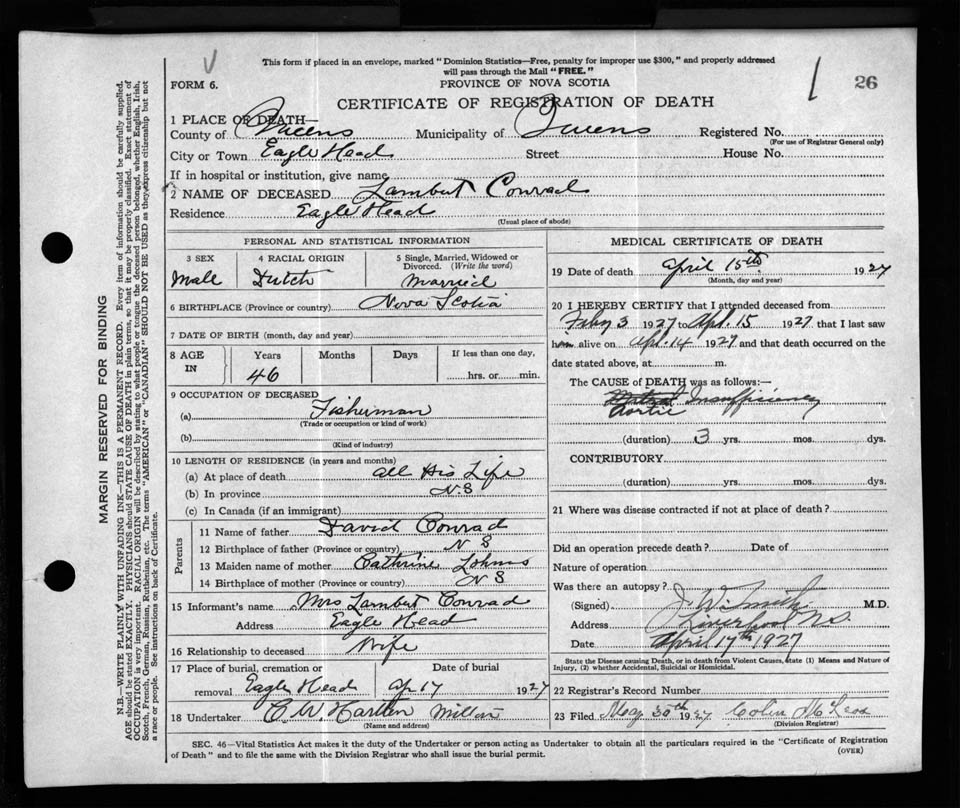 This form if placed in an envelope, marked “Dominion Statistics—Free, penalty for improper use $300,” and properly addressed
will pass through the Mail “FREE.”
FORM 6.
PROVINCE OF NOVA SCOTIA
26
CERTIFICATE OF REGISTRATION OF DEATH
1 PLACE OF DEATH—
County of Queens Municipality of Queens Registered No.
(For use of Registrar General only)
City or Town Eagle Head Street House No.
If in hospital or institution, give name
2 NAME OF DECEASED Lambert Conrad
Residence Eagle Head
(Usual place of abode)
PERSONAL AND STATISTICAL INFORMATION
3 SEX 4 RACIAL ORIGIN 5 Single, Married, Widowed or
Divorced. (Write the word)
Male Dutch Married
6 BIRTHPLACE (Province or country) Nova Scotia
7 DATE OF BIRTH (month, day and year)
8 AGE IN Years Months Days If less than one day,
46 hrs. or min.
9 OCCUPATION OF DECEASED
(a) Fisherman
(Trade or occupation or kind of work)
(b)
(Kind of industry)
10 LENGTH OF RESIDENCE (in years and months)
(a) At place of death all His Life
(b) In province N.S
(c) In Canada (if an immigrant)
Parents
11 Name of father David Conrad
12 Birthplace of father (Province or country) N S
13 Maiden name of mother Cathrine
14 Birthplace of mother (Province or country) N S
15 Informant's name Mrs Lambert Conrad
Address Eagle Head
16 Relationship to deceased Wife
17 Place of burial, cremation or Date of burial
removal Eagle Head Ap 17 1927
18 Undertaker C. W Milton
(Name and address)
MEDICAL CERTIFICATE OF DEATH
19 Date of death April 15th 1927
(Month, day and year)
20 I HEREBY CERTIFY that I attended deceased from
Feby 3 1927 to Apl. 15 1927 that I last saw
him alive on Apl. 14 1927 and that death occurred on the
date stated above, at m.
The CAUSE of DEATH was as follows:—
Insufficiency
Aortic
(duration) 3 yrs. mos. dys.
CONTRIBUTORY
(duration) yrs. mos. dys.
21 Where was disease contracted if not at place of death?
Did an operation precede death? Date of
Nature of operation
Was there an autopsy?
(Signed) J. W. Smith M.D.
Address Liverpool N.S.
Date April 17th 1927
State the Disease causing Death, or in death from Violent Causes, state (1) Means and Nature of
Injury, (2) whether Accidental, Suicidal or Homicidal.
22 Registrar's Record Number
23 Filed May 30th 1927 Colin McLeod
(Division Registrar)
SEC. 46—Vital Statistics Act makes it the duty of the Undertaker or person acting as Undertaker to obtain all the particulars required in the “Certificate of Registration
of Death” and to file the same with the Division Registrar who shall issue the burial permit. (OVER)
MARGIN RESERVED FOR BINDING
N.B.—WRITE PLAINLY WITH UNFADING INK—THIS IS A PERMANENT RECORD. Every item of information should be carefully supplied.
AGE should be stated EXACTLY. PHYSICIANS should STATE CAUSE OF DEATH in plain terms, so that it may be properly classified. Exact statement of
OCCUPATION is very important. RACIAL ORIGIN will be described by stating to what people or tongue the deceased person belonged, whether English, Irish,
Scotch, French, German, Russian, Ruthenian, etc. The terms “AMERICAN” or “CANADIAN” SHOULD NOT BE USED as they express citizenship but not
a race or people. See instructions on back of Certificate.